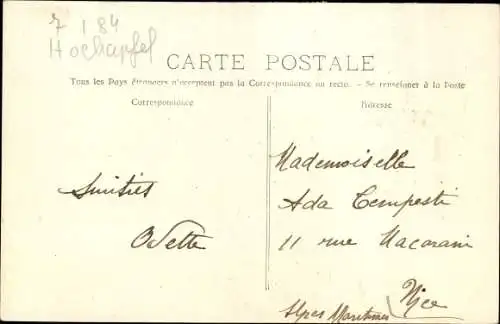 7 1 84
Hochapfel
CARTE POSTALE
Tous les Pays étrangers n'acceptent pas la Correspondance au recto. - Se renseigner à la Poste
Correspondance
Adresse
Mademoiselle
Amitiés
Ada Tempesti
Odette
11 rue Macarani
Nice
Alpes Maritimes